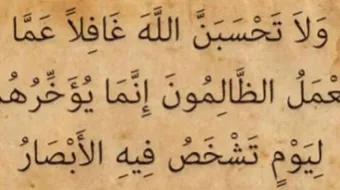 وَلاَ تَحْسَبَنَّ اللَّهَ غَافِلاً عَمَّا
عْمَلُ الظَّالِمُونَ إِنَّمَا يُؤَخِّرُهُم
لِيَوْمٍ تَشْخَصُ فِيهِ الأَبْصَارُ